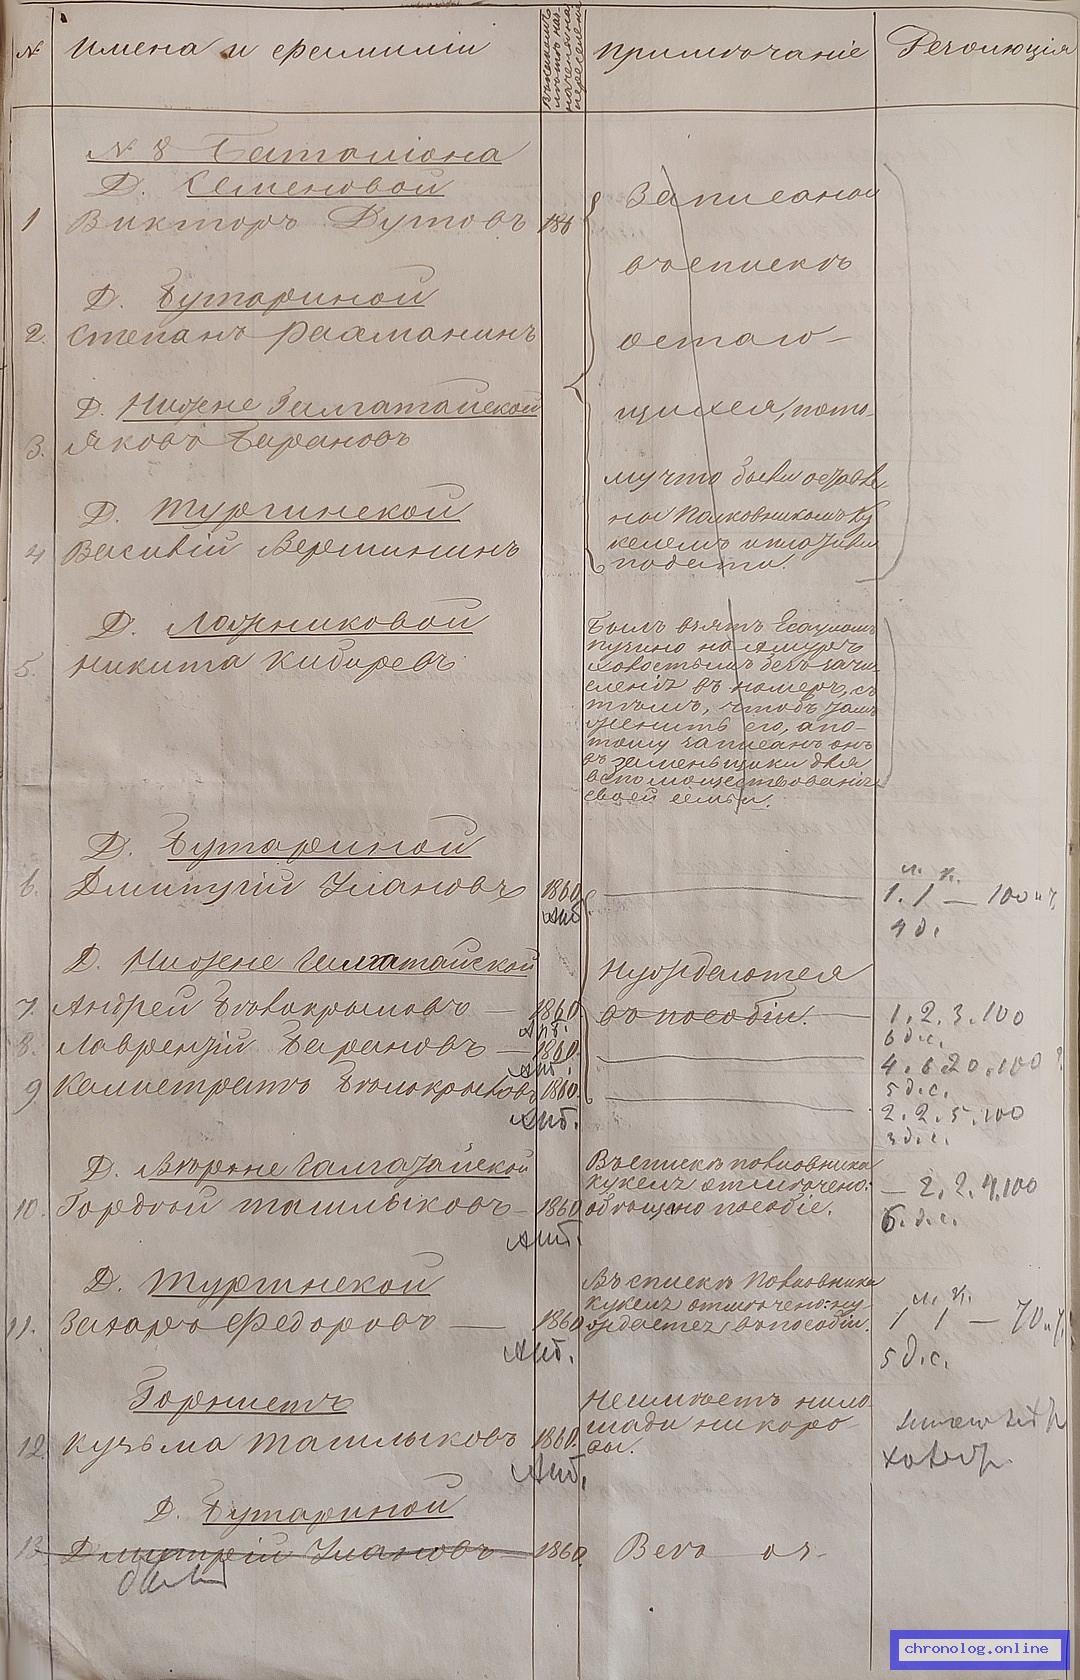 № Имена и фамиліи
Примѣчаніе
Резолюція
№ 8 Баталіона
Д. Семеновой
1 Викторъ Дутовъ 186
Записаны
въ спискѣ
остаю-
щихся, пото-
му что были оставле-
ны Полковникомъ Ку
келемъ и платили
подати.
Д. Бутариной
2. Степанъ Рахманинъ
Д. Нижне Гилгатайской
3. Яковъ Барановъ
Д. Тургинской
4 Василій Вершининъ
Д. Ложниковой
5. Никита Кибиревъ
Былъ взятъ Есауломъ
Пузино на Амуръ
холостымъ безъ зачи-
сленія въ номеръ, съ
тѣмъ, чтобъ
женить его, а по-
тому записанъ онъ
въ заменьщики для
вспомоществованія
своей семьи.
Д. Бутариной
6. Дмитрій Улановъ 1860
Амб
л. к.
1. 1 — 100
4 д.
Д. Нижне Гилгатайской
7. Андрей Бѣлокрыловъ — 1860
Амб.
Нуждаются
въ пособіи.
1. 2. 3. 100
6 д. с.
8. Лаврентій Барановъ — 1860.
Амб.
4. 6. 20. 100
5 д. с.
9 Калистратъ Бѣлокрыловъ 1860.
Амб.
2. 2. 5. 100
3 д. с.
Д. Верхне Галгатайской
10. Гордѣй Ташлыковъ — 1860
Амб.
Въ спискѣ полковника
Кукеля отмѣчено:
обѣщано пособіе.
— 2. 2. 4. 100
6. д. с.
Д. Тургинской
11. Захаръ Федоровъ — 1860
Амб.
Въ спискѣ Полковника
Кукеля отмѣчено: ну-
ждается въ пособіи.
л. к.
1 1 — 70
5 д. с.
12. Кузьма Ташлыковъ 1860.
Амб.
Не имѣетъ ни ло-
шади ни коро-
вы.
Д. Бутариной
13. Дмитрій Улановъ — 1860.
chronolog.online